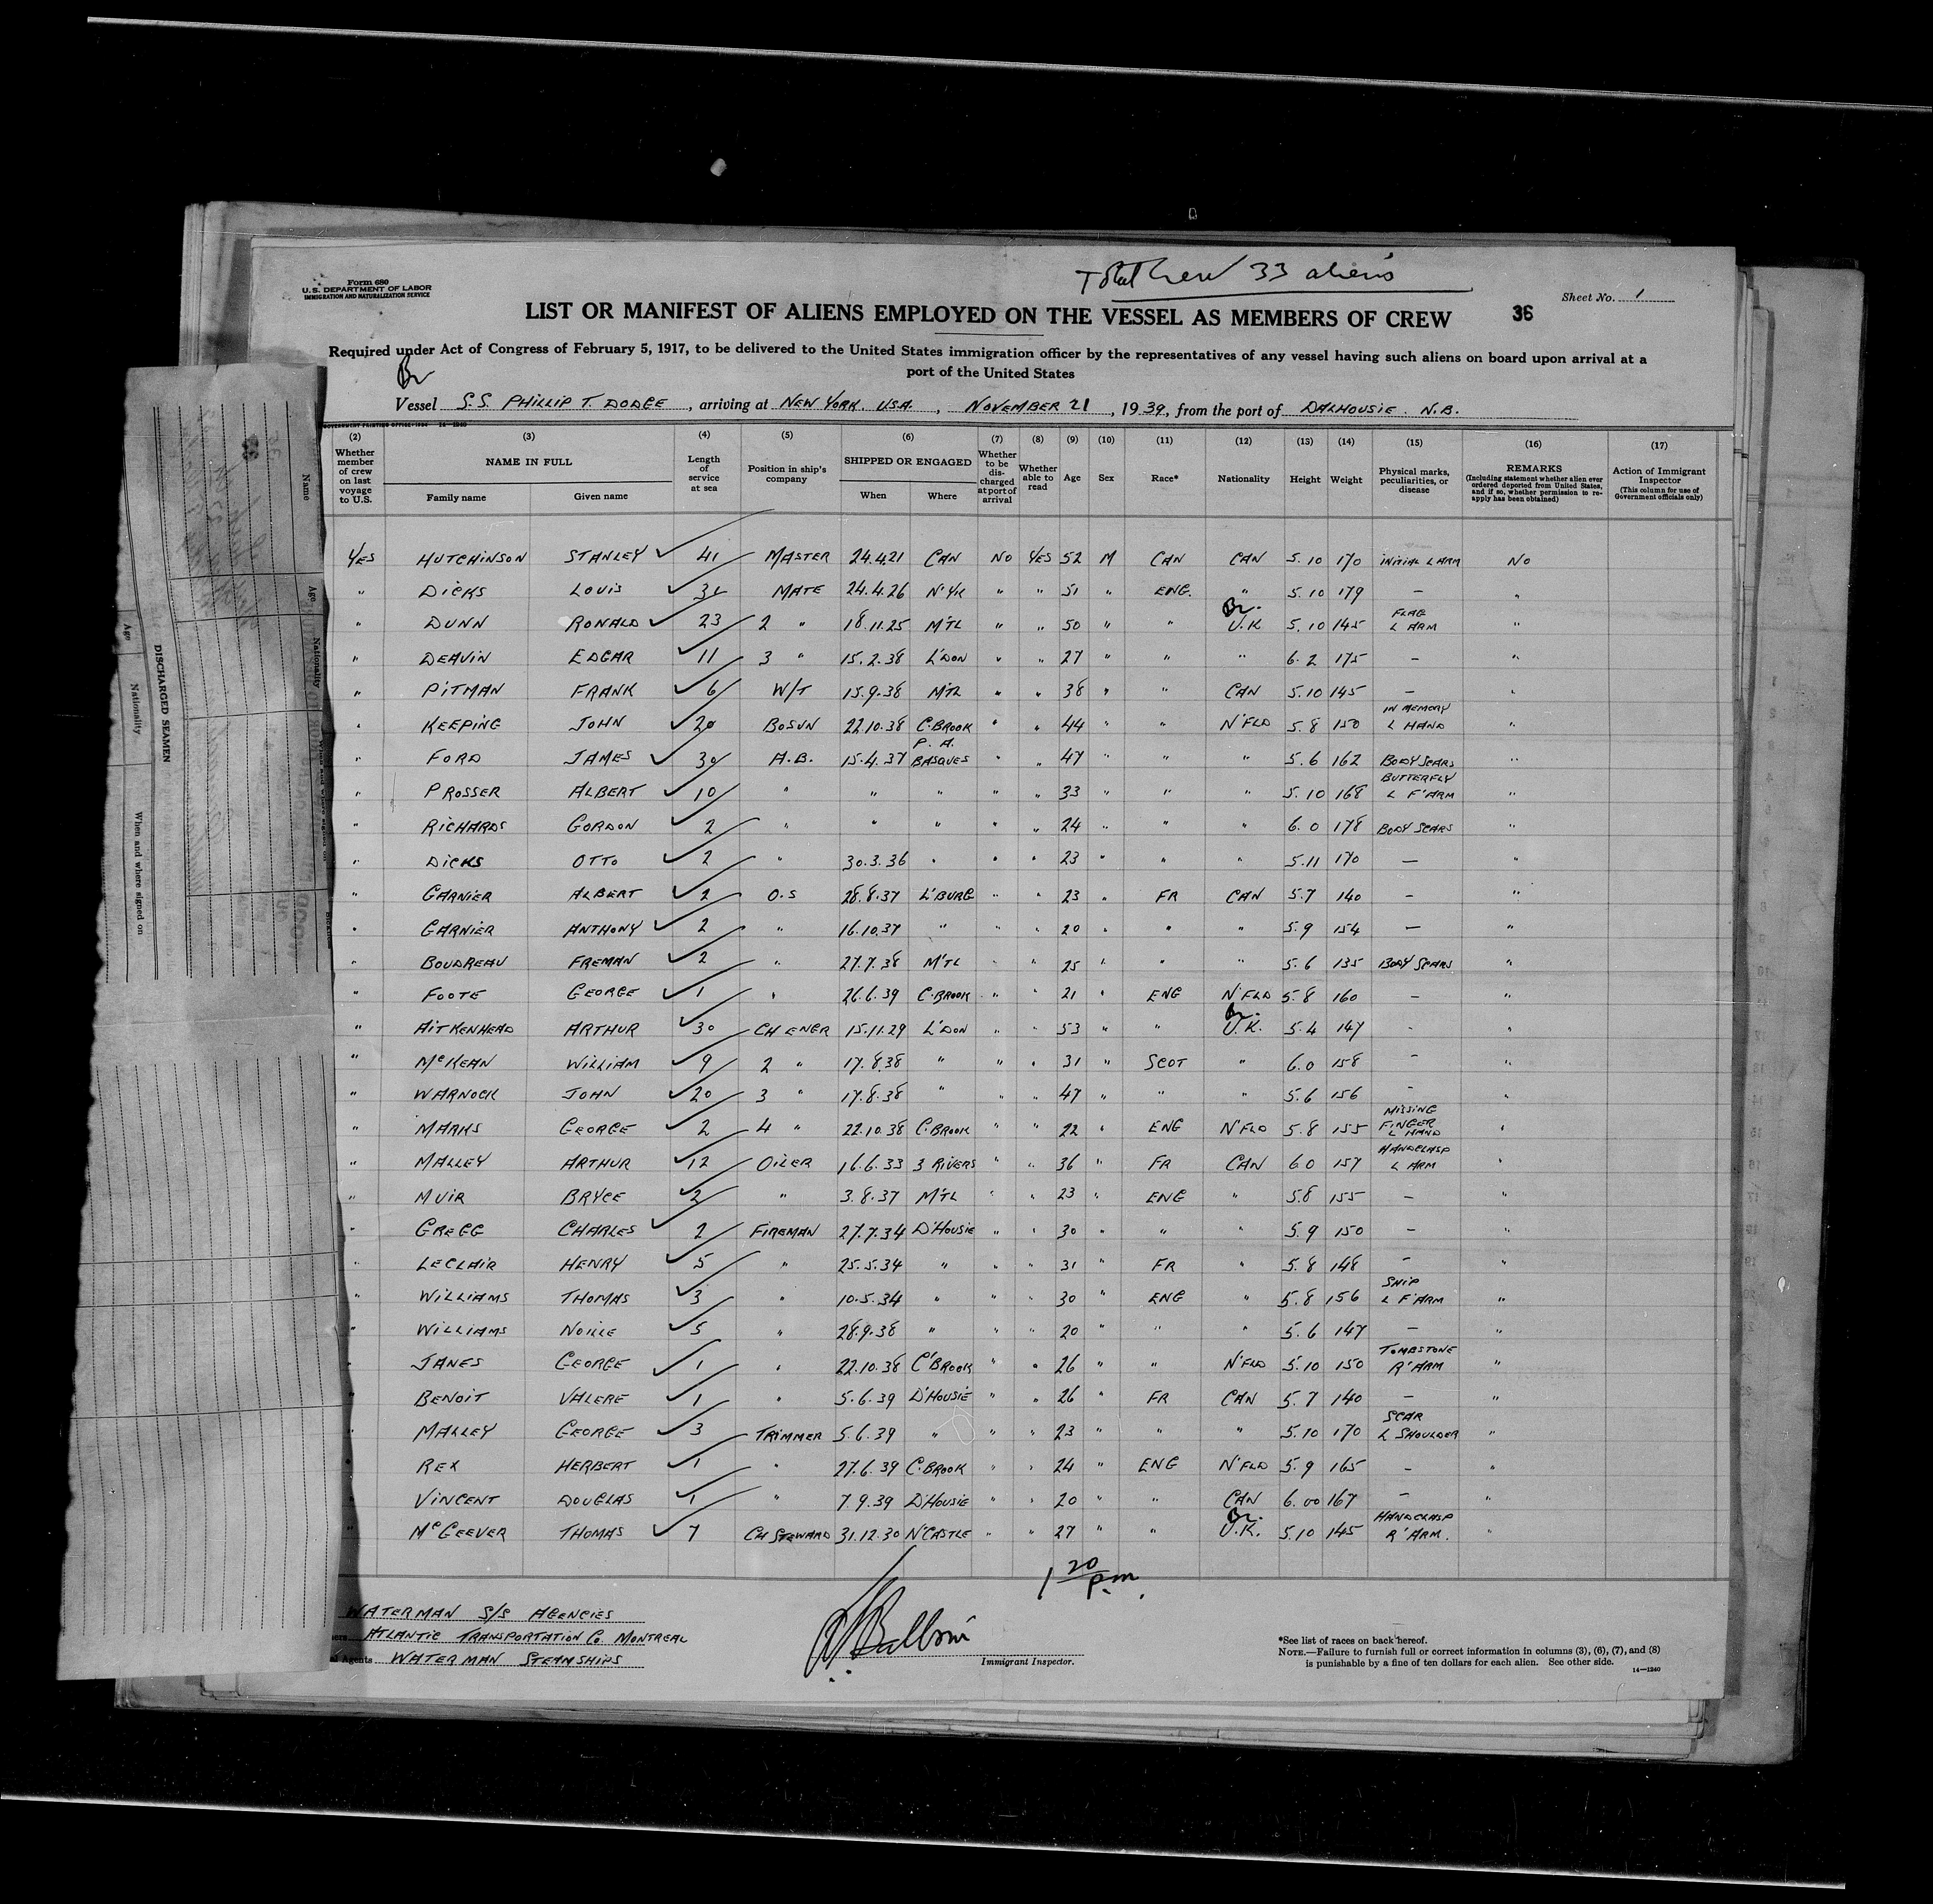 Total Crew 33 aliens
Form 680
U.S. DEPARTMENT OF LABOR
IMMIGRATION AND NATURALIZATION SERVICE
Sheet No. 1
LIST OR MANIFEST OF ALIENS EMPLOYED ON THE VESSEL AS MEMBERS OF CREW 36
Required under Act of Congress of February 5, 1917, to be delivered to the United States immigration officer by the representatives of any vessel having such aliens on board upon arrival at a
port of the United States
Br
Vessel S.S. PHILLIP T. DODGE, arriving at NEW YORK. U.S.A., NOVEMBER 21, 1939, from the port of DALHOUSIE. N.B.
(2) (3) (4) (5) (6) (7) (8) (9) (10) (11) (12) (13) (14) (15) (16) (17)
Whether member of crew on last voyage to U.S. NAME IN FULL Family name Given name Length of service at sea Position in ship's company SHIPPED OR ENGAGED When Where Whether to be discharged at port of arrival Whether able to read Age Sex Race* Nationality Height Weight Physical marks, peculiarities, or disease REMARKS (Including statement whether alien ever ordered deported from United States, and if so, whether permission to reapply has been obtained) Action of Immigrant Inspector (This column for use of Government officials only)
YES HUTCHINSON STANLEY 41 MASTER 24.4.21 CAN NO YES 52 M CAN CAN 5.10 170 INITIAL L ARM NO
" DICKS LOUIS MATE 24.4.26 N'YK " " 51 " ENG. " 5.10 179 — "
" DUNN RONALD 23 2 " 18.11.25 M'TL " " 50 " " Br. U.K 5.10 145 FLAG L ARM "
" DEAVIN EDGAR 11 3 " 15.2.38 L'DON " " 27 " " " 6.2 175 — "
" PITMAN FRANK 6 W/T 15.9.38 M'TL " " 38 " " CAN 5.10 145 — "
" KEEPING JOHN 20 BOSUN 22.10.38 C.BROOK " " 44 " " N'FLD 5.8 150 IN MEMORY L HAND "
" FORD JAMES 30 A.B. 15.4.37 P. A. BASQUES " " 47 " " " 5.6 162 BODY SCARS "
" PROSSER ALBERT 10 " " " " " 33 " " " 5.10 168 BUTTERFLY L F'ARM "
" RICHARDS GORDON 2 " " " " " 24 " " " 6.0 178 BODY SCARS "
" DICKS OTTO 2 " 30.3.36 " " " 23 " " " 5.11 170 — "
" GARNIER ALBERT 2 O.S 28.8.37 L'BURG " " 23 " FR CAN 5.7 140 — "
" GARNIER ANTHONY 2 " 16.10.37 " " " 20 " " " 5.9 154 — "
" BOUDREAU FREMAN 2 " 27.7.38 M'TL " " 25 " " " 5.6 135 BODY SCARS "
" FOOTE GEORGE 1 " 26.6.39 C.BROOK " " 21 " ENG N'FLD 5.8 160 — "
" AITKENHEAD ARTHUR 30 CH ENGR 15.11.29 L'DON " " 53 " " Br. U.K. 5.4 147 - "
" McKEAN WILLIAM 9 2 " 17.8.38 " " " 31 " SCOT " 6.0 158 — "
" WARNOCK JOHN 20 3 " 17.8.38 " " " 47 " " " 5.6 156 — "
" MARKS GEORGE 2 4 " 22.10.38 C.BROOK " " 22 " ENG N'FLD 5.8 155 MISSING FINGER L HAND "
" MALLEY ARTHUR 12 OILER 16.6.33 3 RIVERS " " 36 " FR CAN 6.0 157 HANDCLASP L ARM "
" MUIR BRYCE 2 " 3.8.37 M'TL " " 23 " ENG " 5.8 155 — "
" GREGG CHARLES 2 FIREMAN 27.7.34 D'HOUSIE " " 30 " " " 5.9 150 — "
" LECLAIR HENRY 5 " 25.5.34 " " " 31 " FR " 5.8 148 — "
" WILLIAMS THOMAS 3 " 10.5.34 " " " 30 " ENG " 5.8 156 SHIP L F'ARM "
" WILLIAMS 5 " 28.9.38 " " " 20 " " " 5.6 147 — "
" JANES GEORGE 1 " 22.10.38 C'BROOK " " 26 " " N'FLD 5.10 150 TOMBSTONE R'ARM "
" BENOIT VALERE 1 " 5.6.39 D'HOUSIE " " 26 " FR CAN 5.7 140 — "
" MALLEY GEORGE 3 TRIMMER 5.6.39 " " " 23 " " " 5.10 170 SCAR L SHOULDER "
" REX HERBERT 1 " 27.6.39 C.BROOK " " 24 " ENG N'FLD 5.9 165 — "
" VINCENT DOUGLAS 1 " 7.9.39 D'HOUSIE " " 20 " " CAN 6.00 167 — "
" McGEEVER THOMAS 7 CH STEWARD 31.12.30 N'CASTLE " " 27 " " Br. U.K. 5.10 145 HANDCLASP R'ARM. "
1 20 p.m.
WATERMAN S/S AGENCIES
ATLANTIC TRANSPORTATION Co. MONTREAL
Agents WATERMAN STEAMSHIPS
Immigrant Inspector.
*See list of races on back hereof.
NOTE.—Failure to furnish full or correct information in columns (3), (6), (7), and (8)
is punishable by a fine of ten dollars for each alien. See other side.
14—1240
DISCHARGED SEAMEN
Name
Age
Nationality
When and where signed on
Age
Nationality